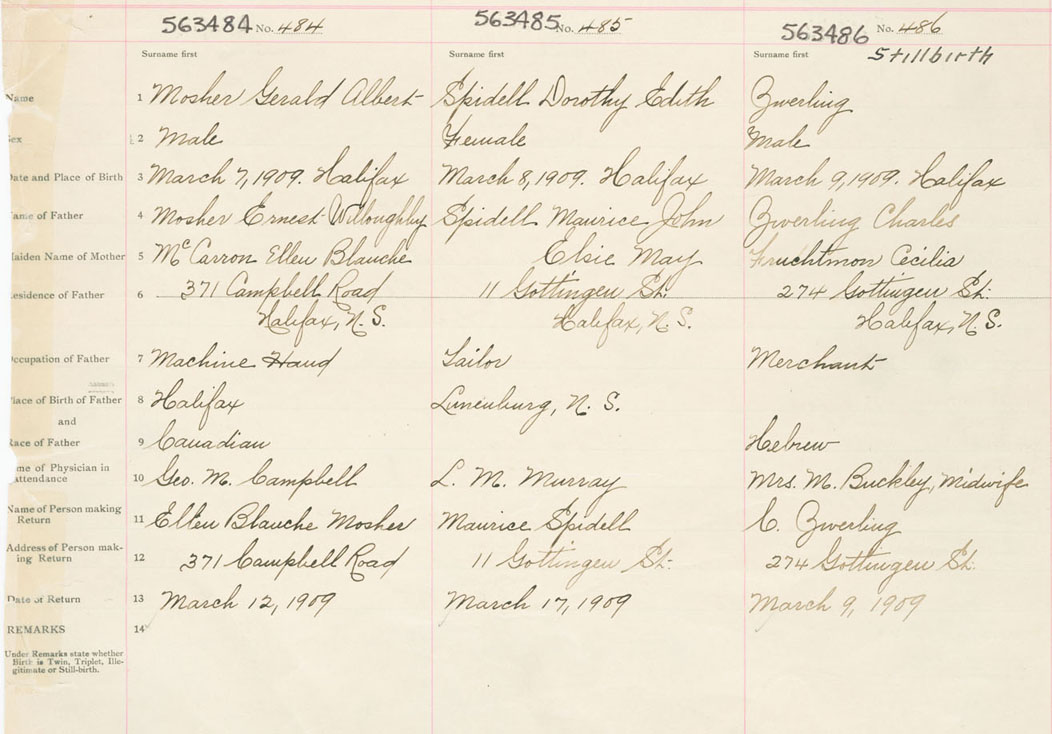 563484 No. 484 563485 No. 485 563486 No. 486
Stillbirth
Surname first Surname first Surname first
Name 1 Mosher Gerald Albert Spidell Dorothy Edith Zwerling
Sex 2 Male Female Male
Date and Place of Birth 3 March 7, 1909. Halifax March 8, 1909. Halifax March 9, 1909. Halifax
Name of Father 4 Mosher Ernest Willoughby Spidell Maurice John Zwerling Charles
Maiden Name of Mother 5 McCarron Ellen Blanche Elsie May Fruchtmon Cecilia
Residence of Father 6 371 Campbell Road 11 Gottingen St. 274 Gottingen St.
Halifax, N.S. Halifax, N.S. Halifax, N.S.
Occupation of Father 7 Machine Hand Tailor Merchant
Place of Birth of Father 8 Halifax Lunenburg, N. S.
and
Race of Father 9 Canadian Hebrew
Name of Physician in
attendance 10 Geo. M. Campbell L. M. Murray Mrs. M. Buckley, Midwife
Name of Person making
Return 11 Ellen Blanche Mosher Maurice Spidell C. Zwerling
Address of Person mak-
ing Return 12 371 Campbell Road 11 Gottingen St. 274 Gottingen St.
Date of Return 13 March 12, 1909 March 17, 1909 March 9, 1909
REMARKS 14
Under Remarks state whether
Birth is Twin, Triplet, Ille-
gitimate or Still-birth.